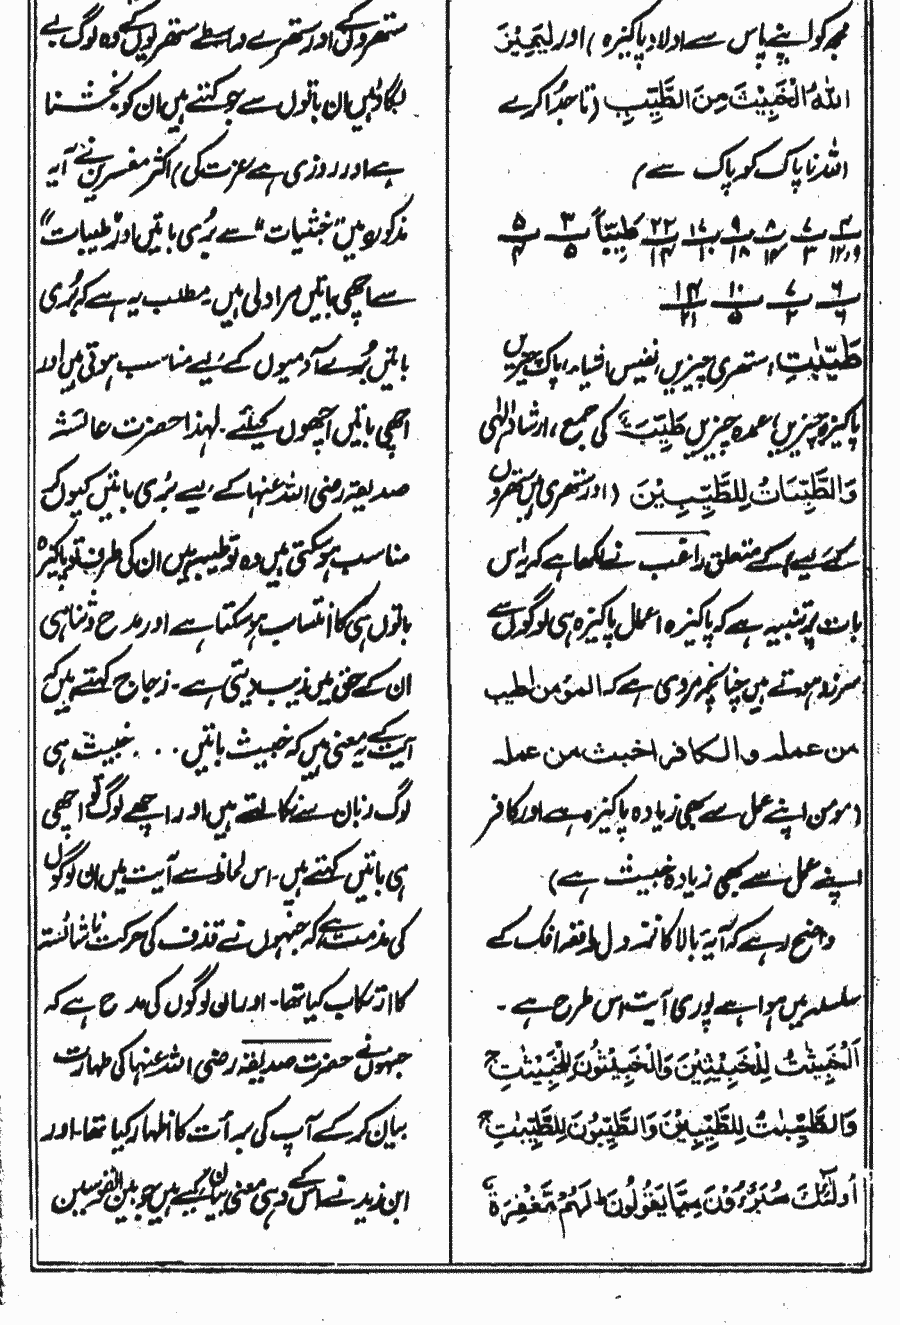 مجھ کو اپنے پاس سے اولاد پاکیزہ) اور لِیَمِیْزَ
اللّٰہُ الْخَبِیْثَ مِنَ الطَّیِّبِ (تا جُدا کرے
اللہ ناپاک کو پاک سے)
طَیِّبًا
طَیِّبٰتِ: ستھری چیزیں، نفیس اشیاء، پاک چیزیں
پاکیزہ چیزیں، عمدہ چیزیں طَیِّبَۃٌ کی جمع، ارشادِ الٰہی
وَالطَّیِّبَاتُ لِلطَّیِّبِیْنَ (اور ستھری ہیں ستھروں
کے لیے) کے متعلق راغب نے لکھا ہے کہ اس
بات پر تنبیہ ہے کہ پاکیزہ اعمال پاکیزہ ہی لوگوں سے
سرزد ہوتے ہیں چنانچہ مروی ہے کہ المؤمن اطیب
من عملہ والکافر اخبث من عملہ
(مومن اپنے عمل سے بھی زیادہ پاکیزہ ہے اور کافر
اپنے عمل سے بھی زیادہ خبیث ہے)
واضح رہے کہ آیۂ بالا کا نزول واقعۂ افک کے
سلسلہ میں ہوا ہے پوری آیت اس طرح ہے۔
اَلْخَبِیْثٰتُ لِلْخَبِیْثِیْنَ وَالْخَبِیْثُوْنَ لِلْخَبِیْثٰتِ ج
وَالطَّیِّبٰتُ لِلطَّیِّبِیْنَ وَالطَّیِّبُوْنَ لِلطَّیِّبٰتِ ج
اُولٰٓئِکَ مُبَرَّءُوْنَ مِمَّا یَقُوْلُوْنَ ط لَہُمْ مَّغْفِرَۃٌ
ستھروں کے اور ستھرے واسطے ستھریوں کے وہ لوگ بے
لگاؤ ہیں ان باتوں سے جو کہتے ہیں ان کو بخشنا
ہے اور روزی ہے عزت کی) اکثر مفسرین نے آیہ
مذکورہ میں "خبیثات" سے بُری باتیں اور "طیبات"
سے اچھی باتیں مراد لی ہیں۔ مطلب یہ ہے کہ بُری
باتیں بُرے آدمیوں کے لیے مناسب ہوتی ہیں اور
اچھی باتیں اچھوں کیلئے۔ لہٰذا حضرت عائشہ
صدیقہ رضی اللہ عنہا کے لیے بُری باتیں کیوں کر
مناسب ہو سکتی ہیں وہ تو طیبہ ہیں ان کی طرف تو پاکیزہ
باتوں ہی کا انتساب ہو سکتا ہے اور مدح و ثنا ہی
ان کے حق میں زیب دیتی ہے۔ زجاج کہتے ہیں کہ
آیت کے یہ معنی ہیں کہ خبیث باتیں ۔۔۔ خبیث ہی
لوگ زبان سے نکالتے ہیں اور اچھے لوگ تو اچھی
ہی باتیں کہتے ہیں۔ اس لحاظ سے آیت میں ان لوگوں
کی مذمت ہے کہ جنہوں نے قذف کی حرکت ناشائستہ
کا ارتکاب کیا تھا۔ اور ان لوگوں کی مدح ہے کہ
جنہوں نے حضرت صدیقہ رضی اللہ عنہا کی طہارت
بیان کر کے آپ کی برأت کا اظہار کیا تھا۔ اور
ابن زید نے اس کے وہی معنی بیان کیے ہیں جو